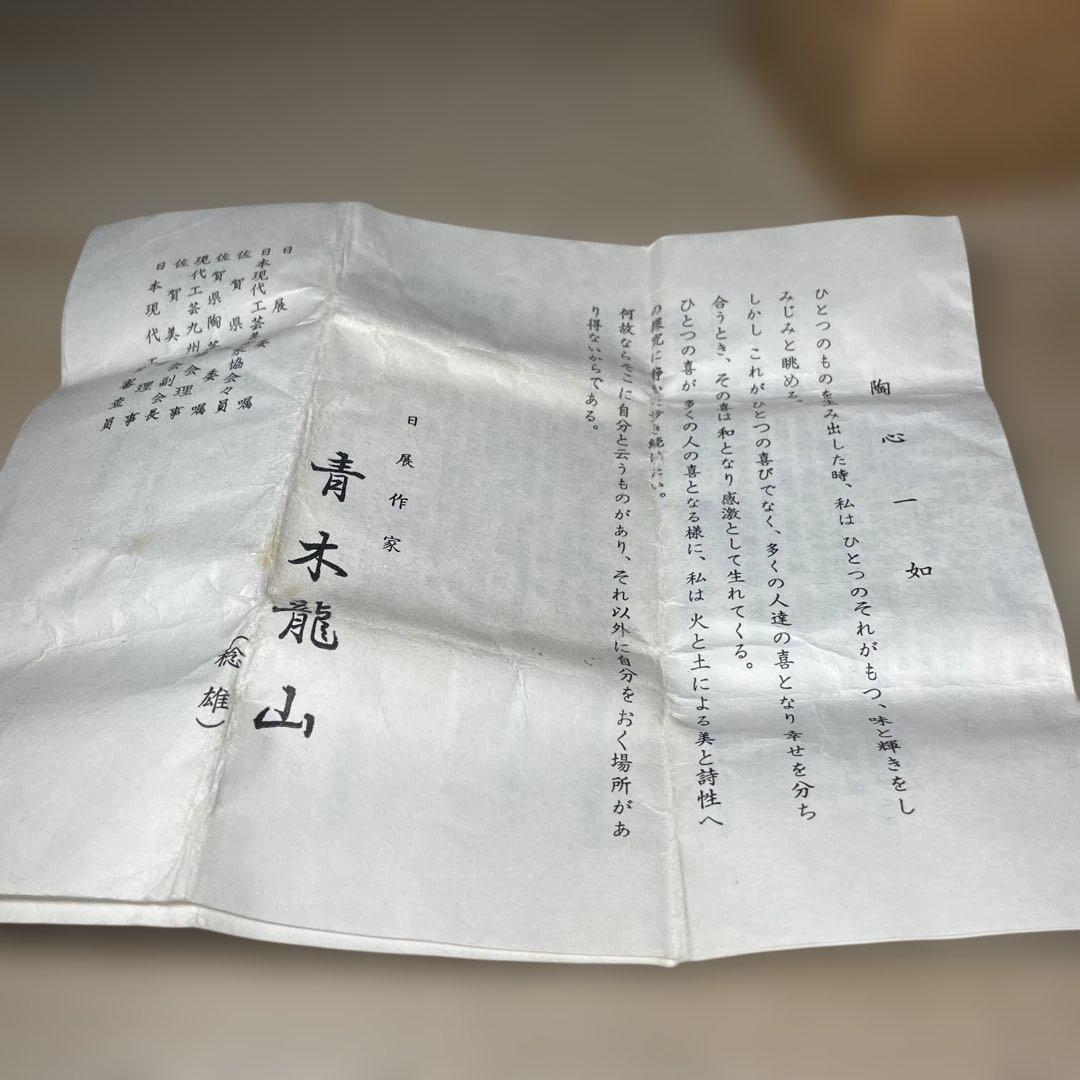 陶心一如
ひとつのものを生み出した時、私はひとつのそれがもつ、味と輝きをし
みじみと眺める。
しかしこれがひとつの喜びでなく、多くの人達の喜となり幸せを分ち
合うとき、その喜は和となり感激として生れてくる。
ひとつの喜が多くの人の喜となる様に、私は火と土による美と詩性へ
の探究に静かに歩き続けたい。
何故ならそこに自分と云うものがあり、それ以外に自分をおく場所があ
り得ないからである。
日展作家
青木龍山
(稔雄)
日展
日本現代工芸
佐賀県 協会々員
佐賀県陶芸 委嘱
現代工芸九州会理事
佐賀美 会副会長
日本現代工 審査員